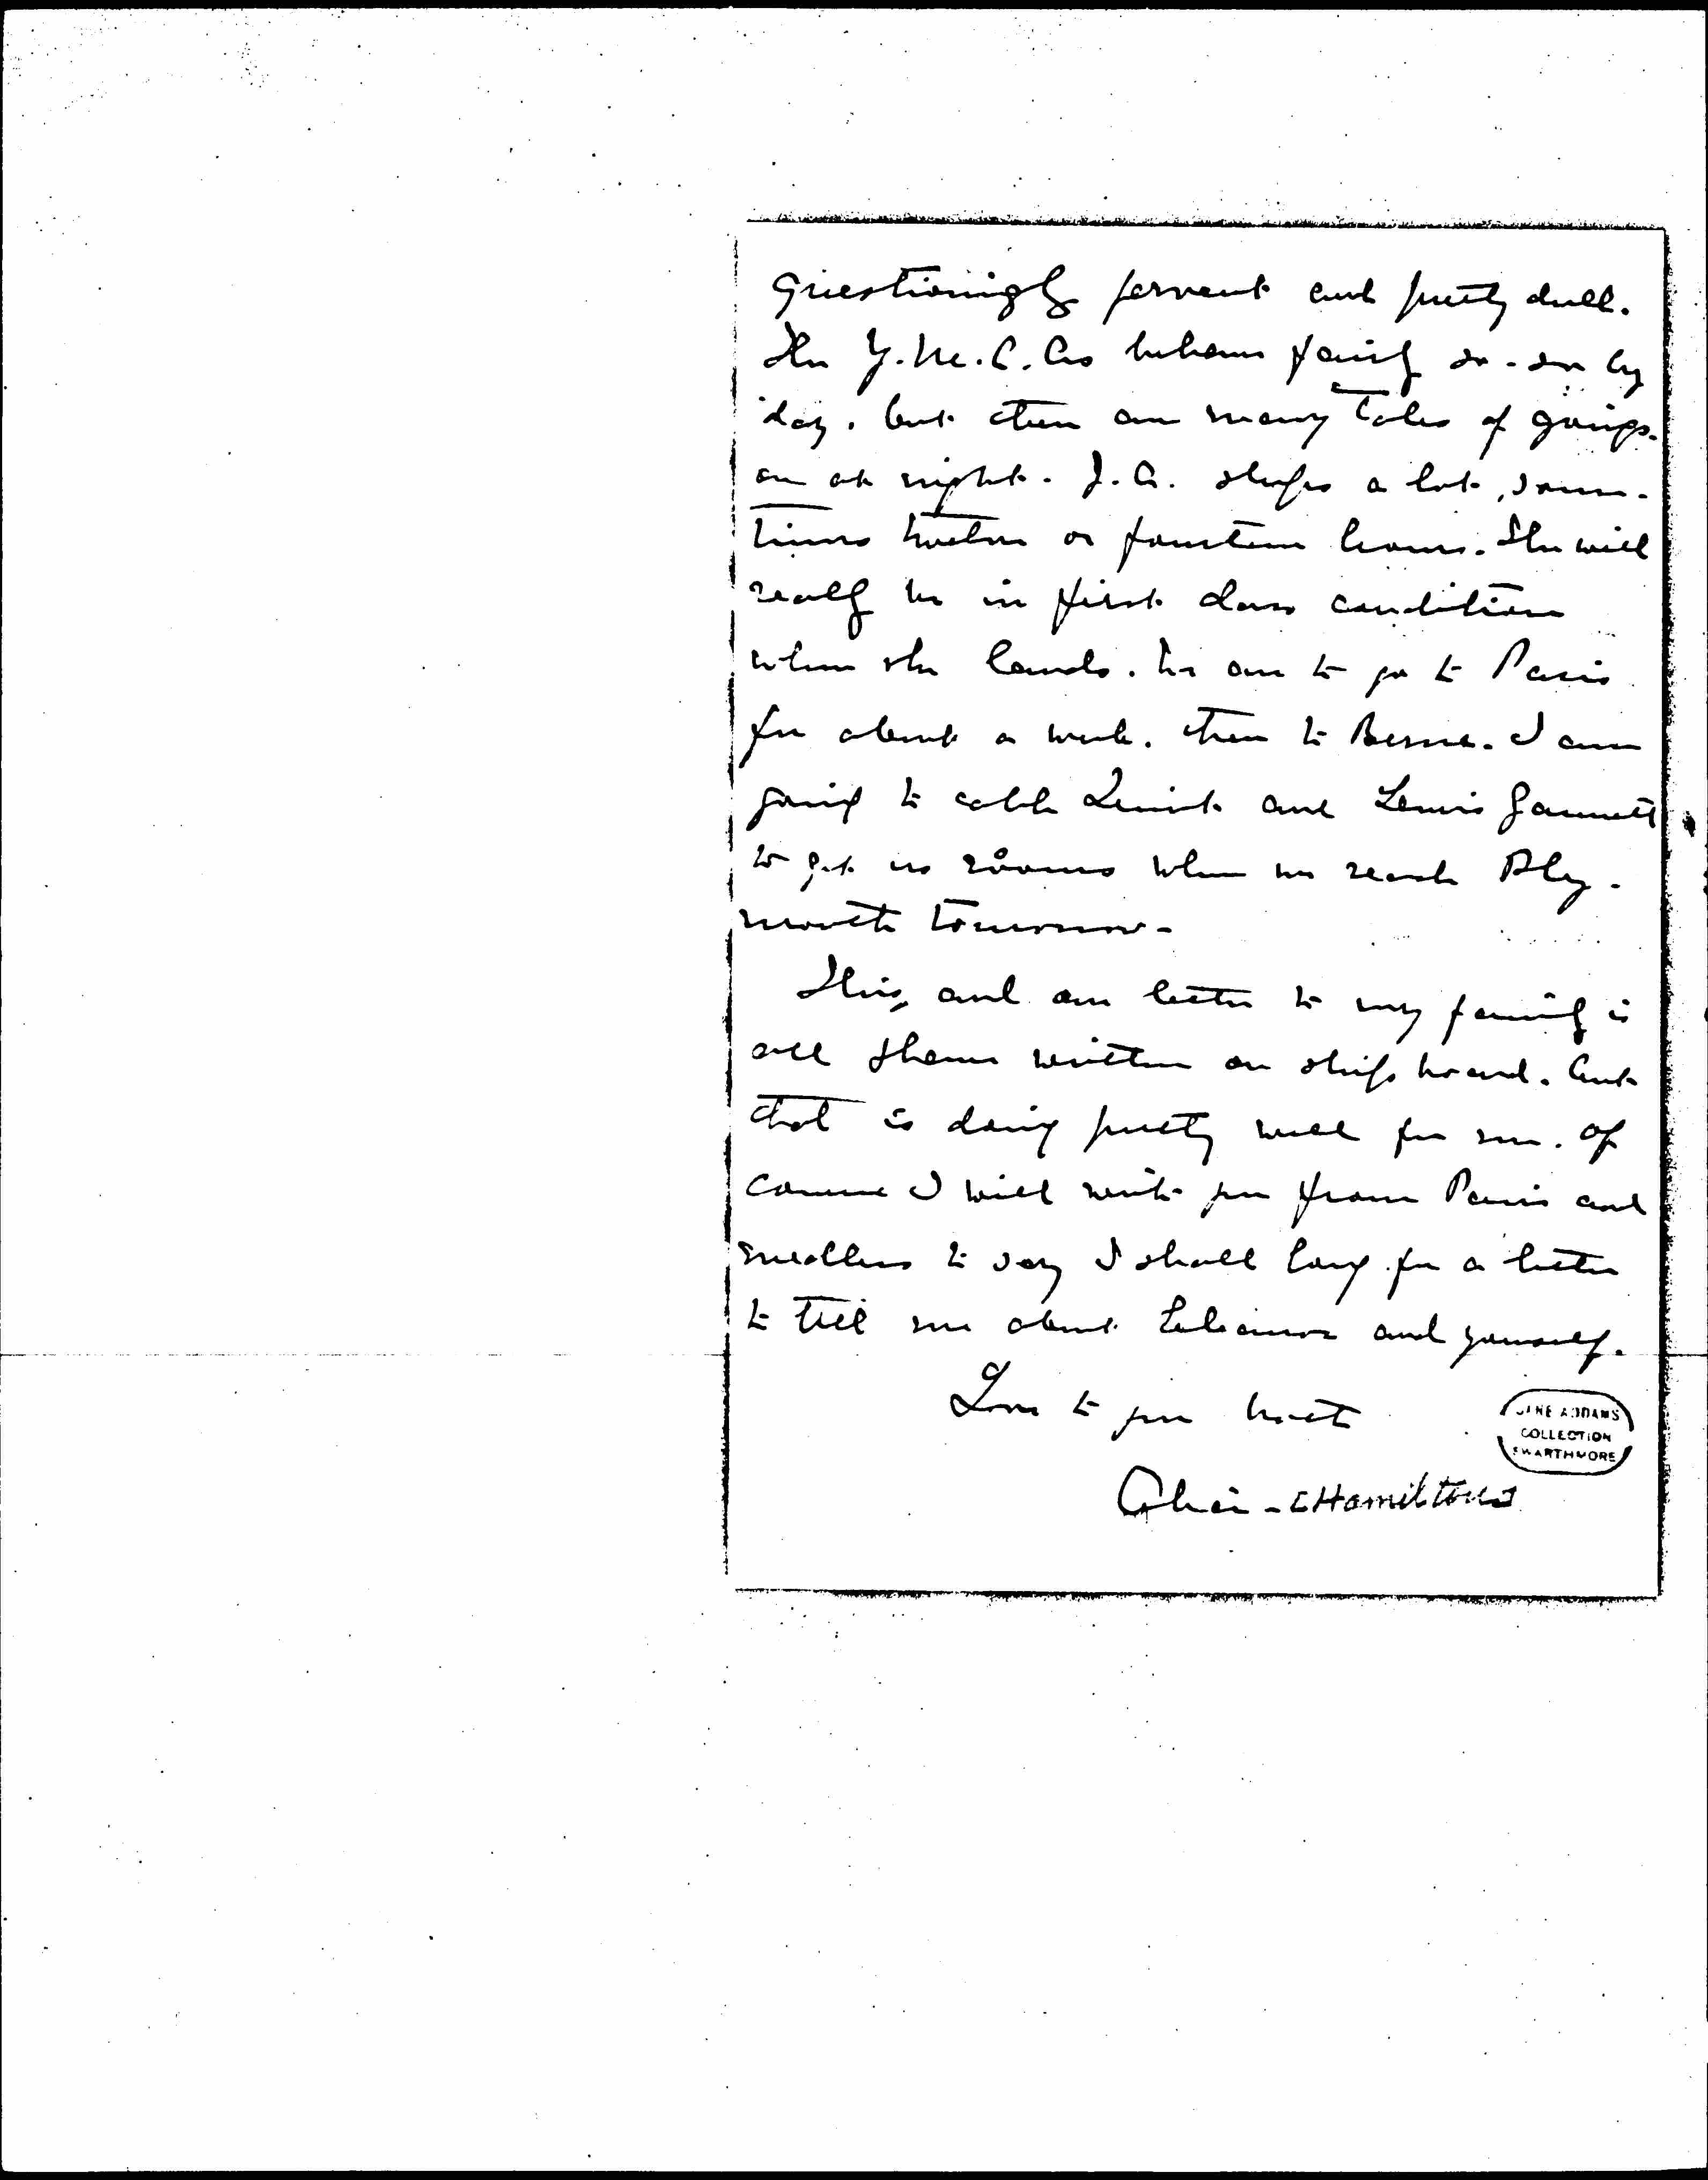 questioningly fervent and pretty dull.
The Y.M.C.As behave fairly so-so by
day, but there are many tales of goings-
on at night. J.A. sleeps a lot, some-
times twelve or fourteen hours. She will
really be in first class condition
when she lands. We are to go to Paris
for about a week, then to Berne. I am
going to cable and Lewis Gannett
to get us rooms when we reach Ply-
mouth tomorrow-
This, and one letter to my family is
all I have written on ship board. but
that is doing pretty well for me. Of
course I will write you from Paris and
needless to say I shall long for a letter
to tell me about Eleanor and yourself.
Love to you both
Alice - [Hamilton]
JANE ADDAMS
COLLECTION
SWARTHMORE